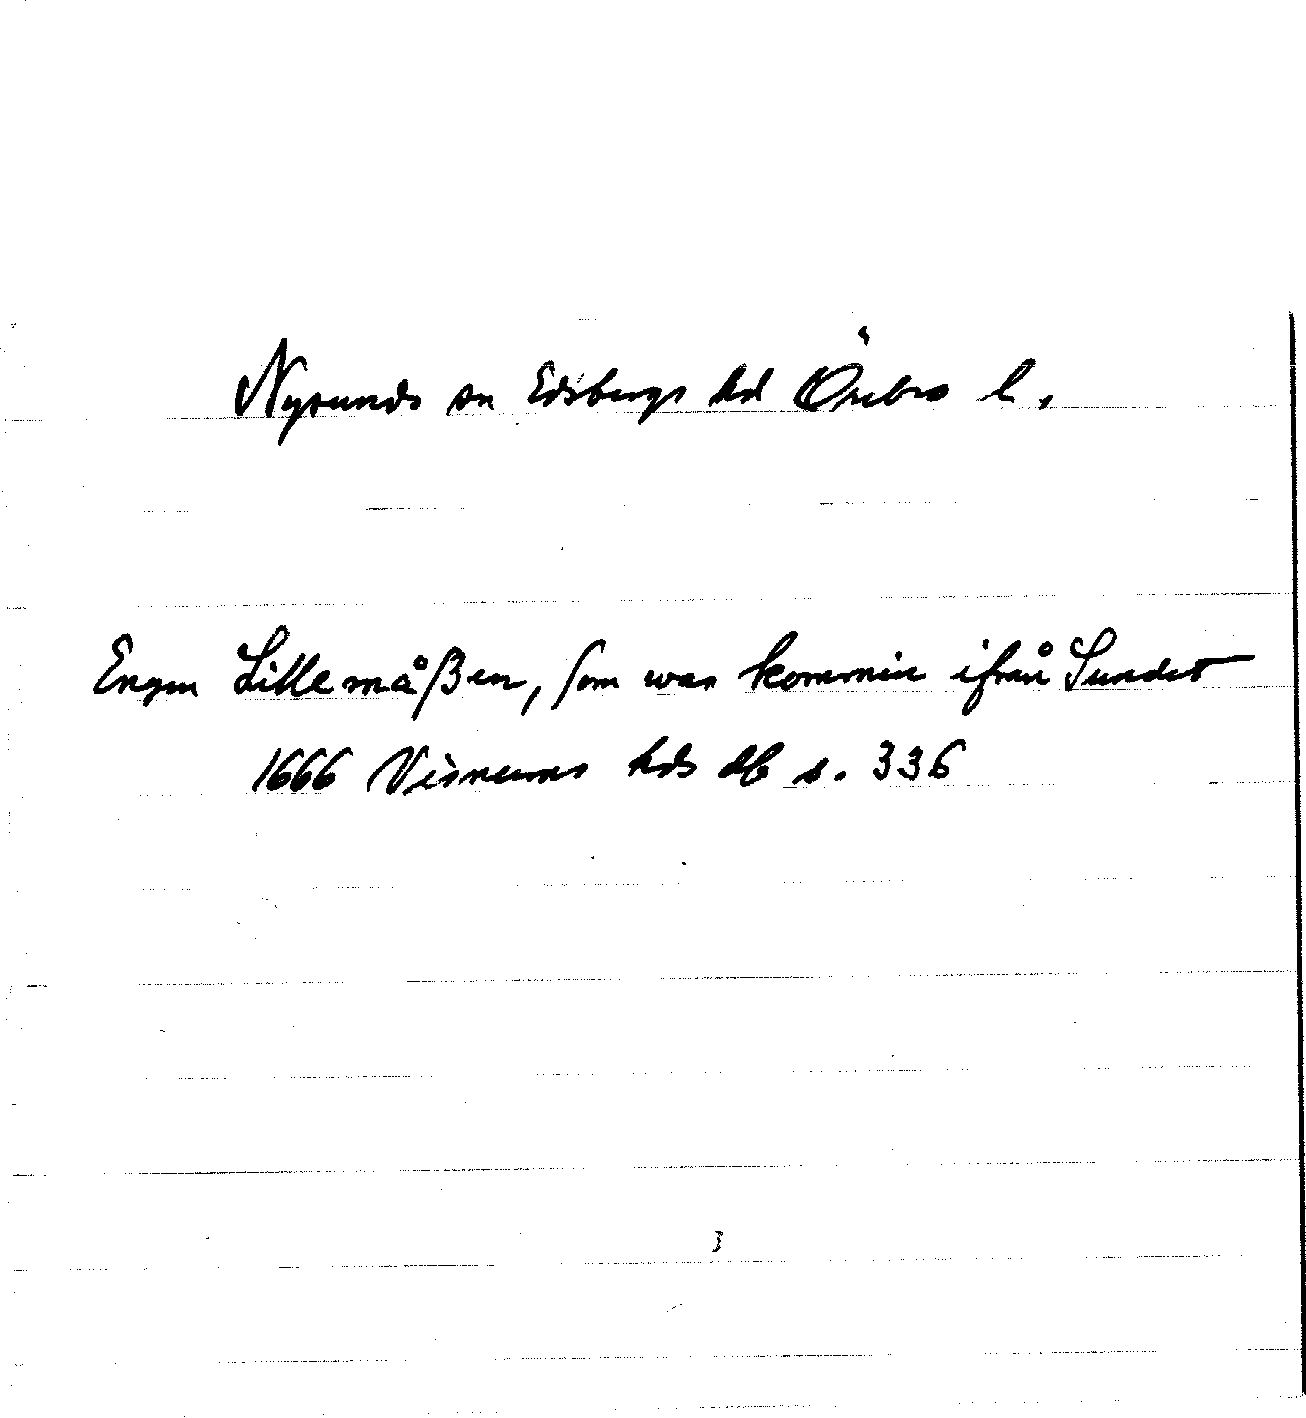 Nysunds sn Edsbergs hd Örebro l.
Engen Lillemåßen, som war kommin ifrån Sundet
1666 Visnums hds db s. 336